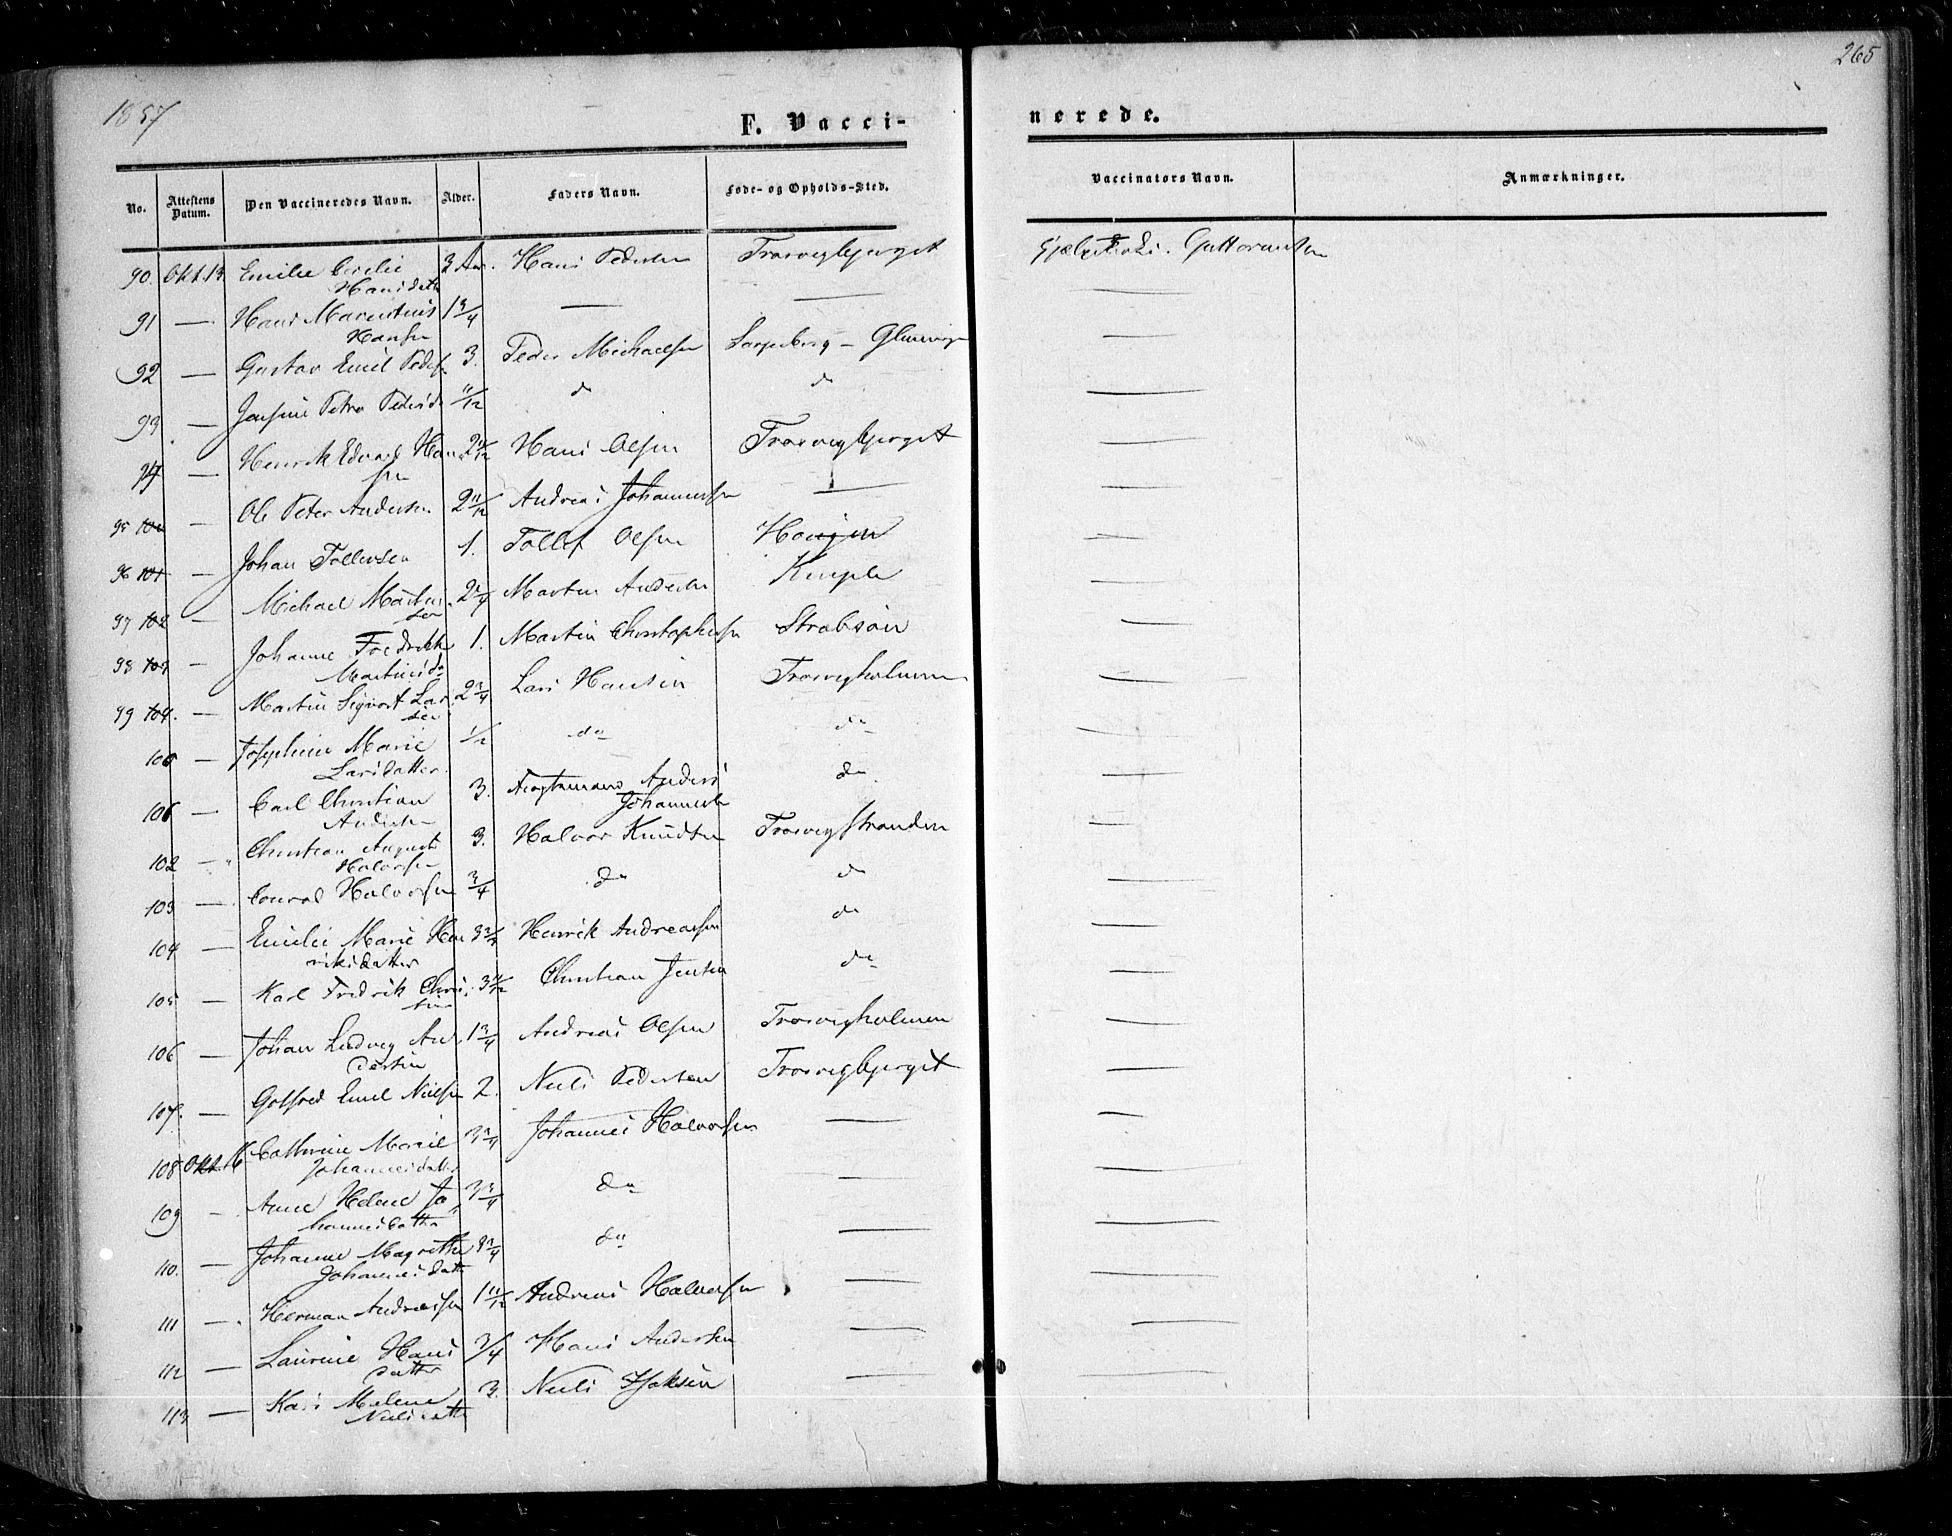 265
1857
F. Vacci-
nerede.
No.
Attestens Datum.
Den Vaccineredes Navn.
Alder.
Faders Navn.
Føde- og Opholds-Sted.
Vaccinators Navn.
Anmærkninger.
90. Okt. 13. Emilie Cecilie 3 Aar. Hans Pedersen Trosvigbjerget Guttormsen
Hansdatter
91 — Hans Martinius 1 3/4 — —
Hansen
92 — Gustav Emil Peders 3. Peder Michaelsen Sarpsborg - Glemminge —
93 — Josefine Petra Pedersd 11/12 do do —
94 — Henrik Edvard Han 2 11/12 Hans Olsen Trosvigbjerget —
sen
95 100 — Ole Peter Andersen 2 11/12 Andreas Johannessen — —
96 101 — Johan Tollevsen 1. Tollef Olsen Haugen —
97 102 — Michael Martin 2 3/4 Martin Andersen Kjæple —
sen
98 103 — Johanne Fredrikke 1. Martin Christophersen —
Martinsd
99 104. — Martin Sigvart Lar 2 3/4 Lars Hansen Trosvigholmen —
sen
100 — Josephine Marie 1/2 do do —
Larsdatter.
101 — Carl Christian 3. Anders do —
Andersen Johannesen
102 — Christian August 3. Halvor Knudsen Trosvigstranden —
Halvorsen
103 — Conrad Halvorsen 3/4 do do —
104 — Emilie Marie Hen 3 3/4 Henrik Andreassen do —
riksdatter
105 — Karl Fredrik Chris 3 11/12 Christian Jensen do —
106 — Johan Ludvig An 1 3/4 Andreas Olsen Trosvigholmen —
dersen
107. — Gotfred Emil Nielsen 2. Niels Pedersen Trosvigbjerget —
108 Okt. 16 Cathrine Marie 3 3/4 Johannes Halvorsen — —
Johannesdatter
109 — Anne Helene Jo 3 3/4 do — —
hannesdatter
110. — Johanne Magrethe 3/4 do — —
Johannesdatter
111 — Herman Andreassen 1 11/12 Andreas Halvorsen — —
112 — Laurine Hans 3/4 Hans Andersen — —
datter
113 — Kari Malene 3. Niels Isaksen — —
Nielsdatter